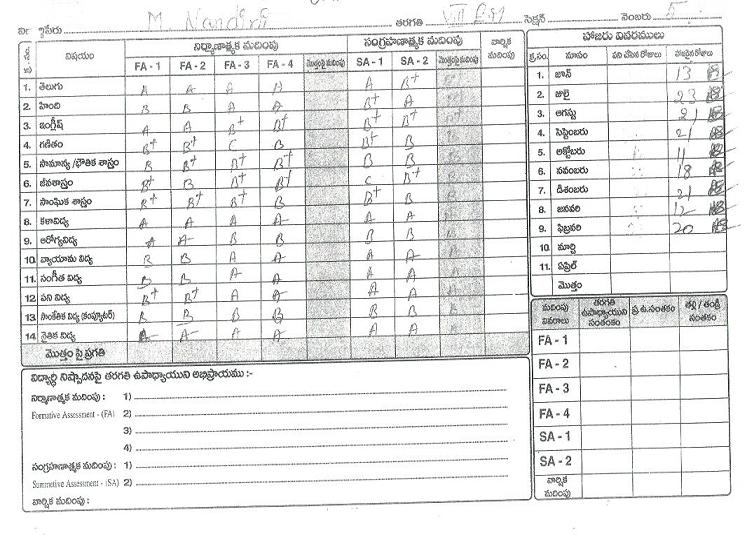 M. Nandini తరగతి VIII సెక్షన్ నెంబరు 5
విషయం నిర్మాణాత్మక మదింపు సంగ్రహణాత్మక మదింపు వార్షిక మదింపు
FA - 1 FA - 2 FA - 3 FA - 4 మొత్తంపై మదింపు SA - 1 SA - 2 మొత్తంపై మదింపు
1. తెలుగు A A A A A B+
2. హింది B B A A B+ A
3. ఇంగ్లీష్ A A B+ B+ B+ B+
4. గణితం B+ B+ C B B+ B
5. సామాన్య / భౌతిక శాస్త్రం B B+ B+ B+ B B
6. జీవశాస్త్రం B+ B B+ B+ C B+
7. సాంఘిక శాస్త్రం B+ B+ B+ B B+ B
8. కళావిద్య A A A A A A
9. ఆరోగ్యవిద్య A A B B B B
10. వ్యాయామ విద్య B B A A A A
11. సంగీత విద్య B B A A A A
12. పని విద్య B+ B+ A A A A
13. సాంకేతిక విద్య (కంప్యూటర్) B B B B B B
14. నైతిక విద్య A A A A A A
మొత్తం పై ప్రగతి
విద్యార్థి నిష్పాదనపై తరగతి ఉపాధ్యాయుని అభిప్రాయము :-
నిర్మాణాత్మక మదింపు : 1)
Formative Assessment - (FA) 2)
3)
4)
సంగ్రహణాత్మక మదింపు : 1)
Summetive Assessment - (SA) 2)
వార్షిక మదింపు :
హాజరు వివరములు
క్ర.సం. మాసం పని చేసిన రోజులు హాజరైన రోజులు
1. జూన్ 13
2. జులై 23
3. ఆగస్టు 21
4. సెప్టెంబరు 21
5. అక్టోబరు 11
6. నవంబరు 18
7. డిశంబరు 21
8. జనవరి 12
9. ఫిబ్రవరి 20
10. మార్చి
11. ఏప్రిల్
మొత్తం
మదింపు వివరాలు తరగతి ఉపాధ్యాయుని సంతకం ప్ర.ఉ.సంతకం తల్లి / తండ్రి సంతకం
FA - 1
FA - 2
FA - 3
FA - 4
SA - 1
SA - 2
వార్షిక మదింపు